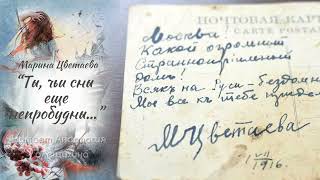 Марина Цветаева
"Ты, чьи сны
еще
непробудны..."
Читает Анастасия
ПОЧТОВАЯ КАР
CARTE POSTA
Москва!
Какой огромный
Странноприимный
Домъ!
Всякъ на Руси - бездомн
Мы все къ тебѣ придем
МЦветаева
1916.